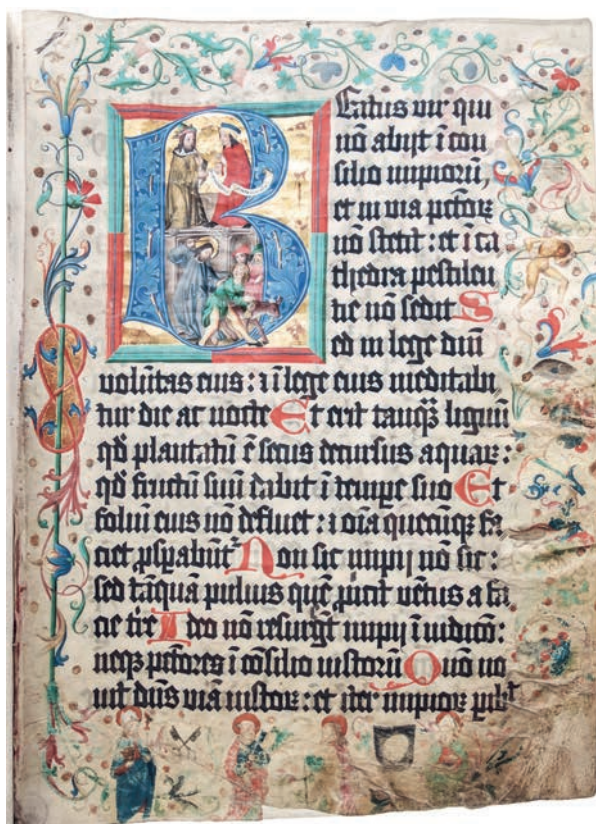 Beatus vir qui
nō abijt ī con
silio impiorū,
et in via pctoꝝ
nō stetit : et ī ca
thedra pestilen
tie nō sedit S
ed in lege dnī
volūtas eius : ī lege eius meditabi
tur die ac nocte Et erit tanqȝ lignū
qd̄ plantatū ē secus decursus aquaꝝ :
qd̄ fructū suū dabit ī tempe suo Et
foliū eius nō defluet : ī oīa quecūqȝ fa
ciet ꝓsꝑabūt᷑ Non sic impij nō sic :
sed tāquā puluis quē ꝓicit vētus a fa
cie tre Ideo nō resurgēt impij ī iudicō :
neqȝ pctores ī cōsilio iustorū Qm̄ no
uit dn̄s viā iustoꝝ : et iter impioꝝ ꝑibt᷑